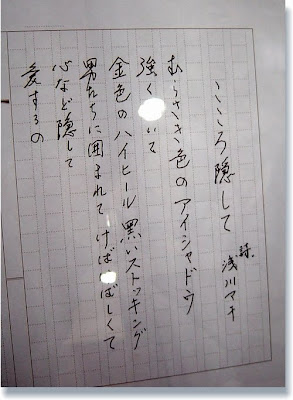 こころ隠して
詩. 浅川マキ
むらさき色のアイシャドウ
強く いて
金色のハイヒール 黒いストッキング
男たちに囲まれて けばけばしくて
心など隠して
愛するの